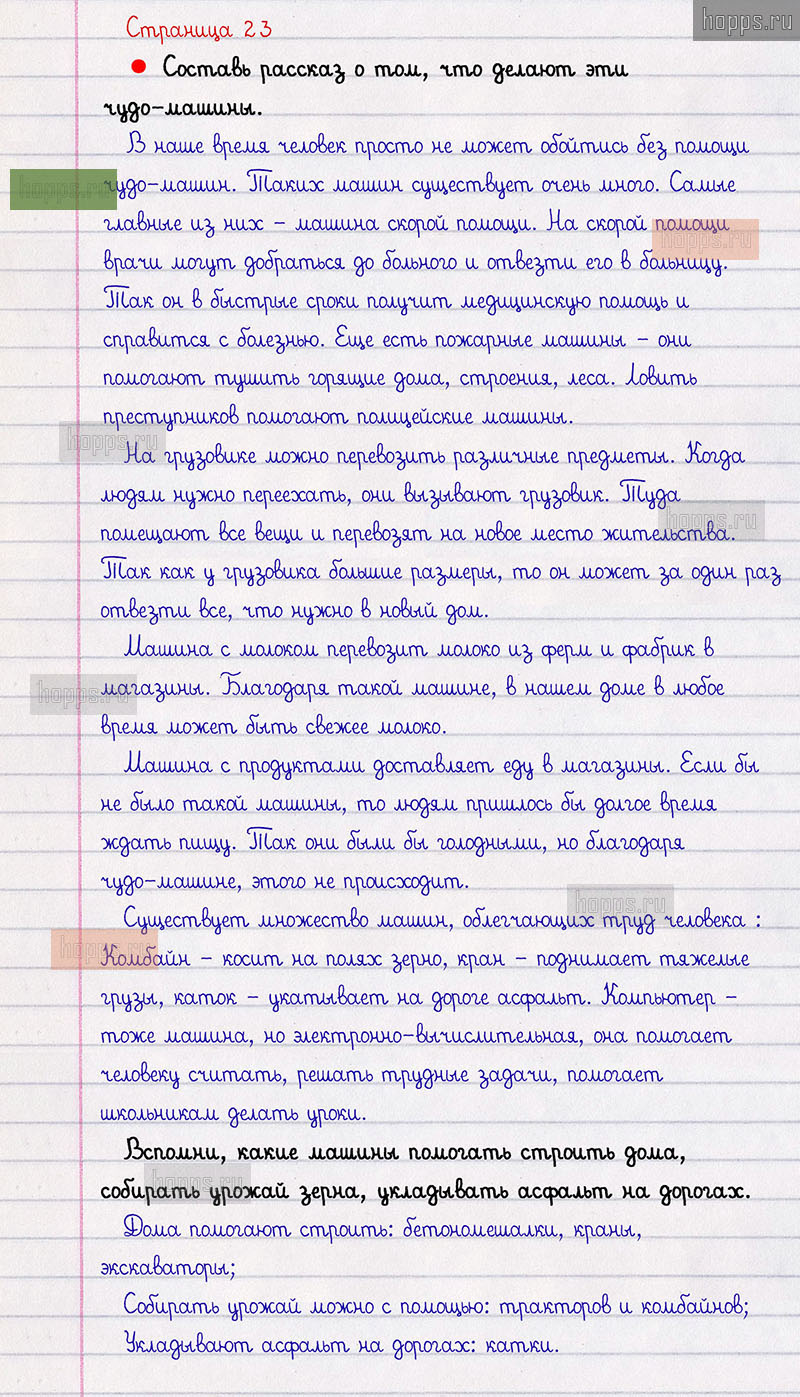 Страница 23
hopps.ru
● Составь рассказ о том, что делают эти
чудо-машины.
В наше время человек просто не может обойтись без помощи
чудо-машин. Таких машин существует очень много. Самые
hopps.ru
главные из них - машина скорой помощи. На скорой помощи
hopps.ru
врачи могут добраться до больного и отвезти его в больницу.
Так он в быстрые сроки получит медицинскую помощь и
справится с болезнью. Еще есть пожарные машины - они
помогают тушить горящие дома, строения, леса. Ловить
преступников помогают полицейские машины.
hopps.ru
На грузовике можно перевозить различные предметы. Когда
людям нужно переехать, они вызывают грузовик. Туда
hopps.ru
помещают все вещи и перевозят на новое место жительства.
Так как у грузовика большие размеры, то он может за один раз
отвезти все, что нужно в новый дом.
Машина с молоком перевозит молоко из ферм и фабрик в
магазины. Благодаря такой машине, в нашем доме в любое
hopps.ru
время может быть свежее молоко.
Машина с продуктами доставляет еду в магазины. Если бы
не было такой машины, то людям пришлось бы долгое время
ждать пищу. Так они были бы голодными, но благодаря
чудо-машине, этого не происходит.
hopps.ru
Существует множество машин, облегчающих труд человека :
hopps.ru
Комбайн - косит на полях зерно, кран - поднимает тяжелые
грузы, каток - укатывает на дороге асфальт. Компьютер -
тоже машина, но электронно-вычислительная, она помогает
человеку считать, решать трудные задачи, помогает
школьникам делать уроки.
Вспомни, какие машины помогать строить дома,
hopps.ru
собирать урожай зерна, укладывать асфальт на дорогах.
Дома помогают строить: бетономешалки, краны,
экскаваторы;
Собирать урожай можно с помощью: тракторов и комбайнов;
Укладывают асфальт на дорогах: катки.